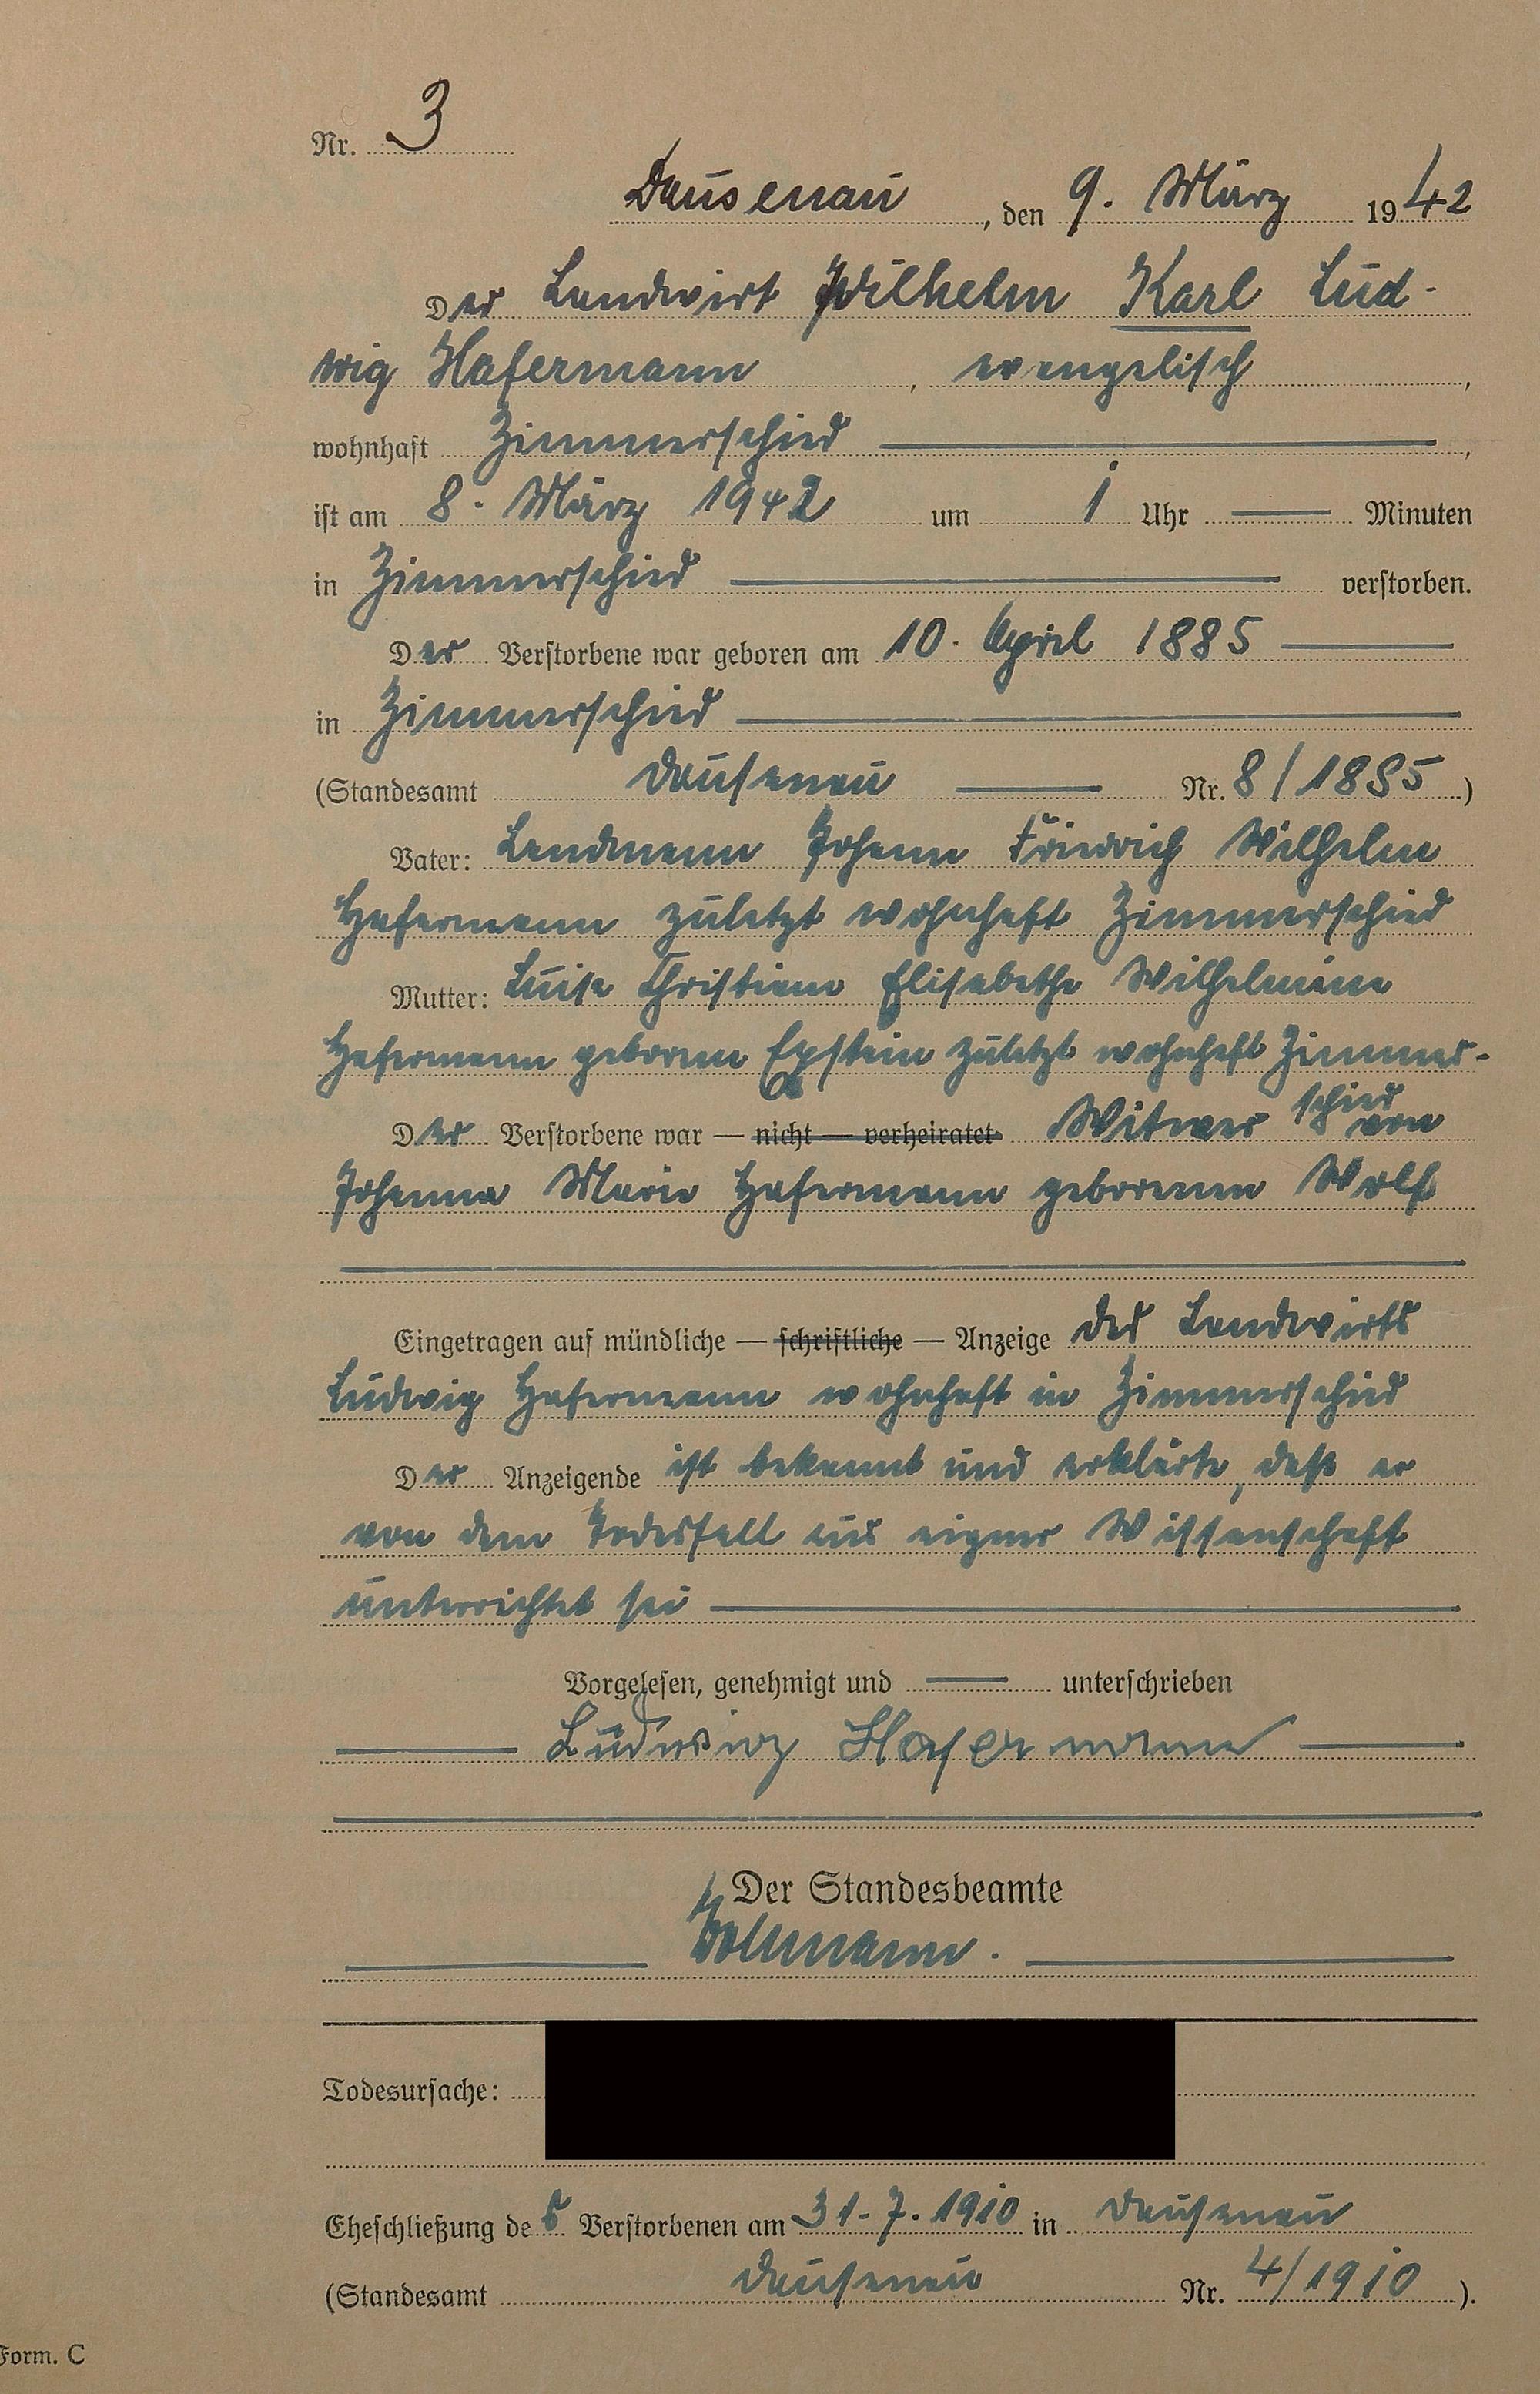 Nr. 3
Dausenau, den 9. März 1942
Der Landwirt Wilhelm Karl Lud-
wig Hafermann, evangelisch,
wohnhaft Zimmerschied,
ist am 8. März 1942 um 1 Uhr Minuten
in Zimmerschied verstorben.
Der Verstorbene war geboren am 10. April 1885
in Zimmerschied
(Standesamt Dausenau Nr. 8/1885)
Vater: Landmann Johann Friedrich Wilhelm
Hafermann zuletzt wohnhaft Zimmerschied
Mutter: Luise Christiane Elisabethe Wilhelmine
Hafermann geborene Epstein zuletzt wohnhaft Zimmer-
schied
Der Verstorbene war — nicht — verheiratet Witwer von
Johanna Marie Hafermann geborenen Wolf
Eingetragen auf mündliche — schriftliche — Anzeige des Landwirts
Ludwig Hafermann wohnhaft in Zimmerschied
Der Anzeigende ist bekannt und erklärte, daß er
von dem Todesfall aus eigner Wissenschaft
unterrichtet sei
Vorgelesen, genehmigt und unterschrieben
Ludwig Hafermann
Der Standesbeamte
Todesursache:
Eheschließung des Verstorbenen am 31.7.1910 in Dausenau
(Standesamt Dausenau Nr. 4/1910).
Form. C